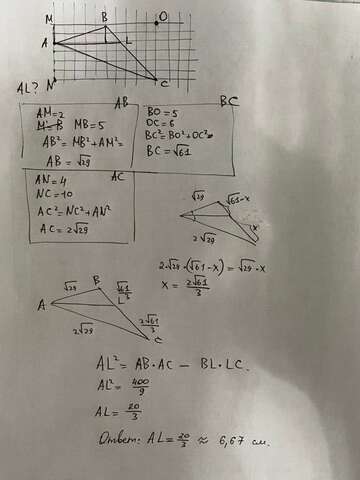 M B O
A L
AL? N C
AB
AM=2
M B MB=5
AB²= MB²+AM²=
AB = √29
BC
BO=5
OC=6
BC²=BO²+OC²
BC=√61
AC
AN=4
NC=10
AC²=NC²+AN²
AC=2√29
√29 √61-x
x
2√29
2·√29·(√61-x)=√29·x
x = 2√61/3
B
√29 √61/3
A L
2√29 2√61/3
C
AL² = AB·AC - BL·LC.
AL² = 400/9
AL = 20/3
Ответ: AL = 20/3 ≈ 6,67 см.